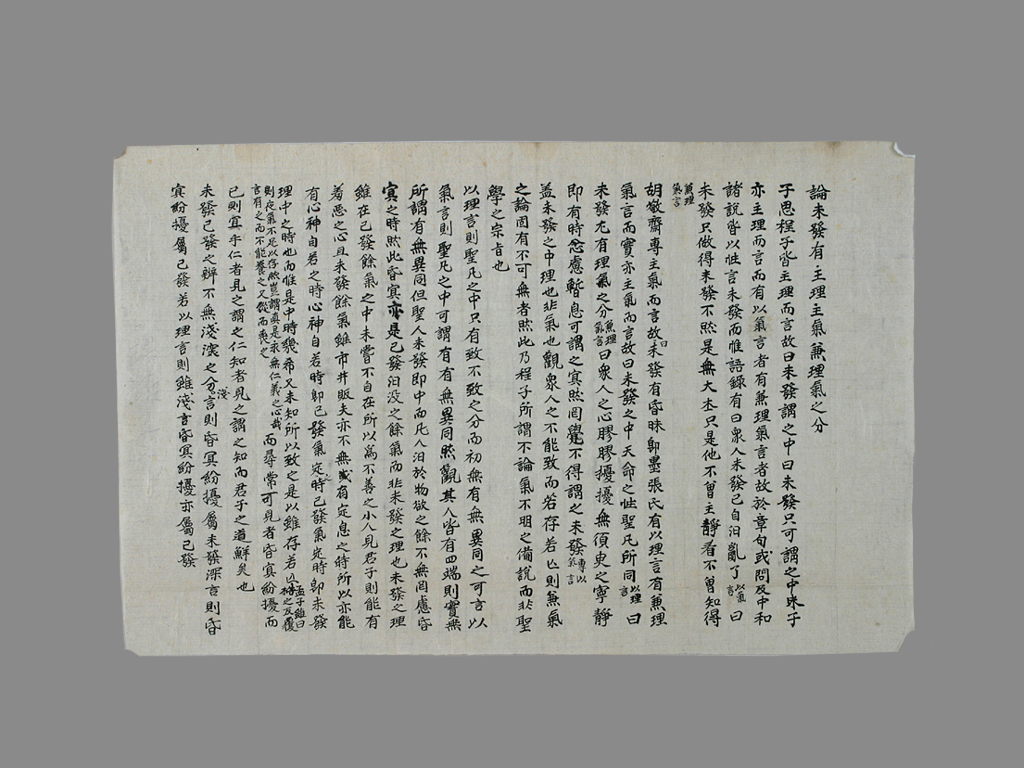 論未發有主理主氣兼理氣之分
子思程子皆主理而言故曰未發謂之中曰未發只可謂之中朱子
亦主理而言而有以氣言者有兼理氣言者故於章句或問及中和
諸說皆以性言未發而惟語錄有曰衆人未發已自汨亂了以氣言曰
未發只做得未發不然是無大本只是他不曾主靜看不曾知得
兼理氣言
胡敬齋專主氣而言故曰未發有昏昧卽墨張氏有以理言有兼理
氣言而實亦主氣而言故曰未發之中天命之性聖凡所同以理言曰
未發尤有理氣之分兼理氣言曰衆人之心膠膠擾擾無須臾之寧靜
卽有時念慮暫息可謂之冥然罔覺不得謂之未發專以氣言
盖未發之中理也非氣也觀衆人之不能致而若存若亡則兼氣
之論固有不可無者然此乃程子所謂不論氣不明之備說而非聖
學之宗旨也
以理言則聖凡之中只有致不致之分而初無有無異同之可言以
氣言則聖凡之中可謂有有無異同然觀其人皆有四端則實無
所謂有無異同但聖人未發卽中而凡人汨於物欲之餘不無罔慮昏
寞之時然此昏寞亦是已發汨没之餘氣而非未發之理也未發之理
雖在已發餘氣之中未嘗不自在所以爲不善之小人見君子則能有
羞惡之心且未發餘氣雖市井販夫亦不無或有定息之時所以亦能
有心神自若之時心神自若時卽已發氣定之時已發氣定時卽未發
理中之時也而惟是中時幾希又未知所以致之是以雖存若亡孟子雖曰梏之反覆
則夜氣不足以存然豈謂眞是永無仁義之心哉而尋常可見者昏寞紛擾而
言有之而不能養之又從而喪之
已則宜乎仁者見之謂之仁知者見之謂之知而君子之道鮮矣也
未發已發之辨不無淺深之分淺言則昏冥紛擾屬未發深言則昏
寞紛擾屬已發若以理言則雖淺言昏寞紛擾亦屬已發